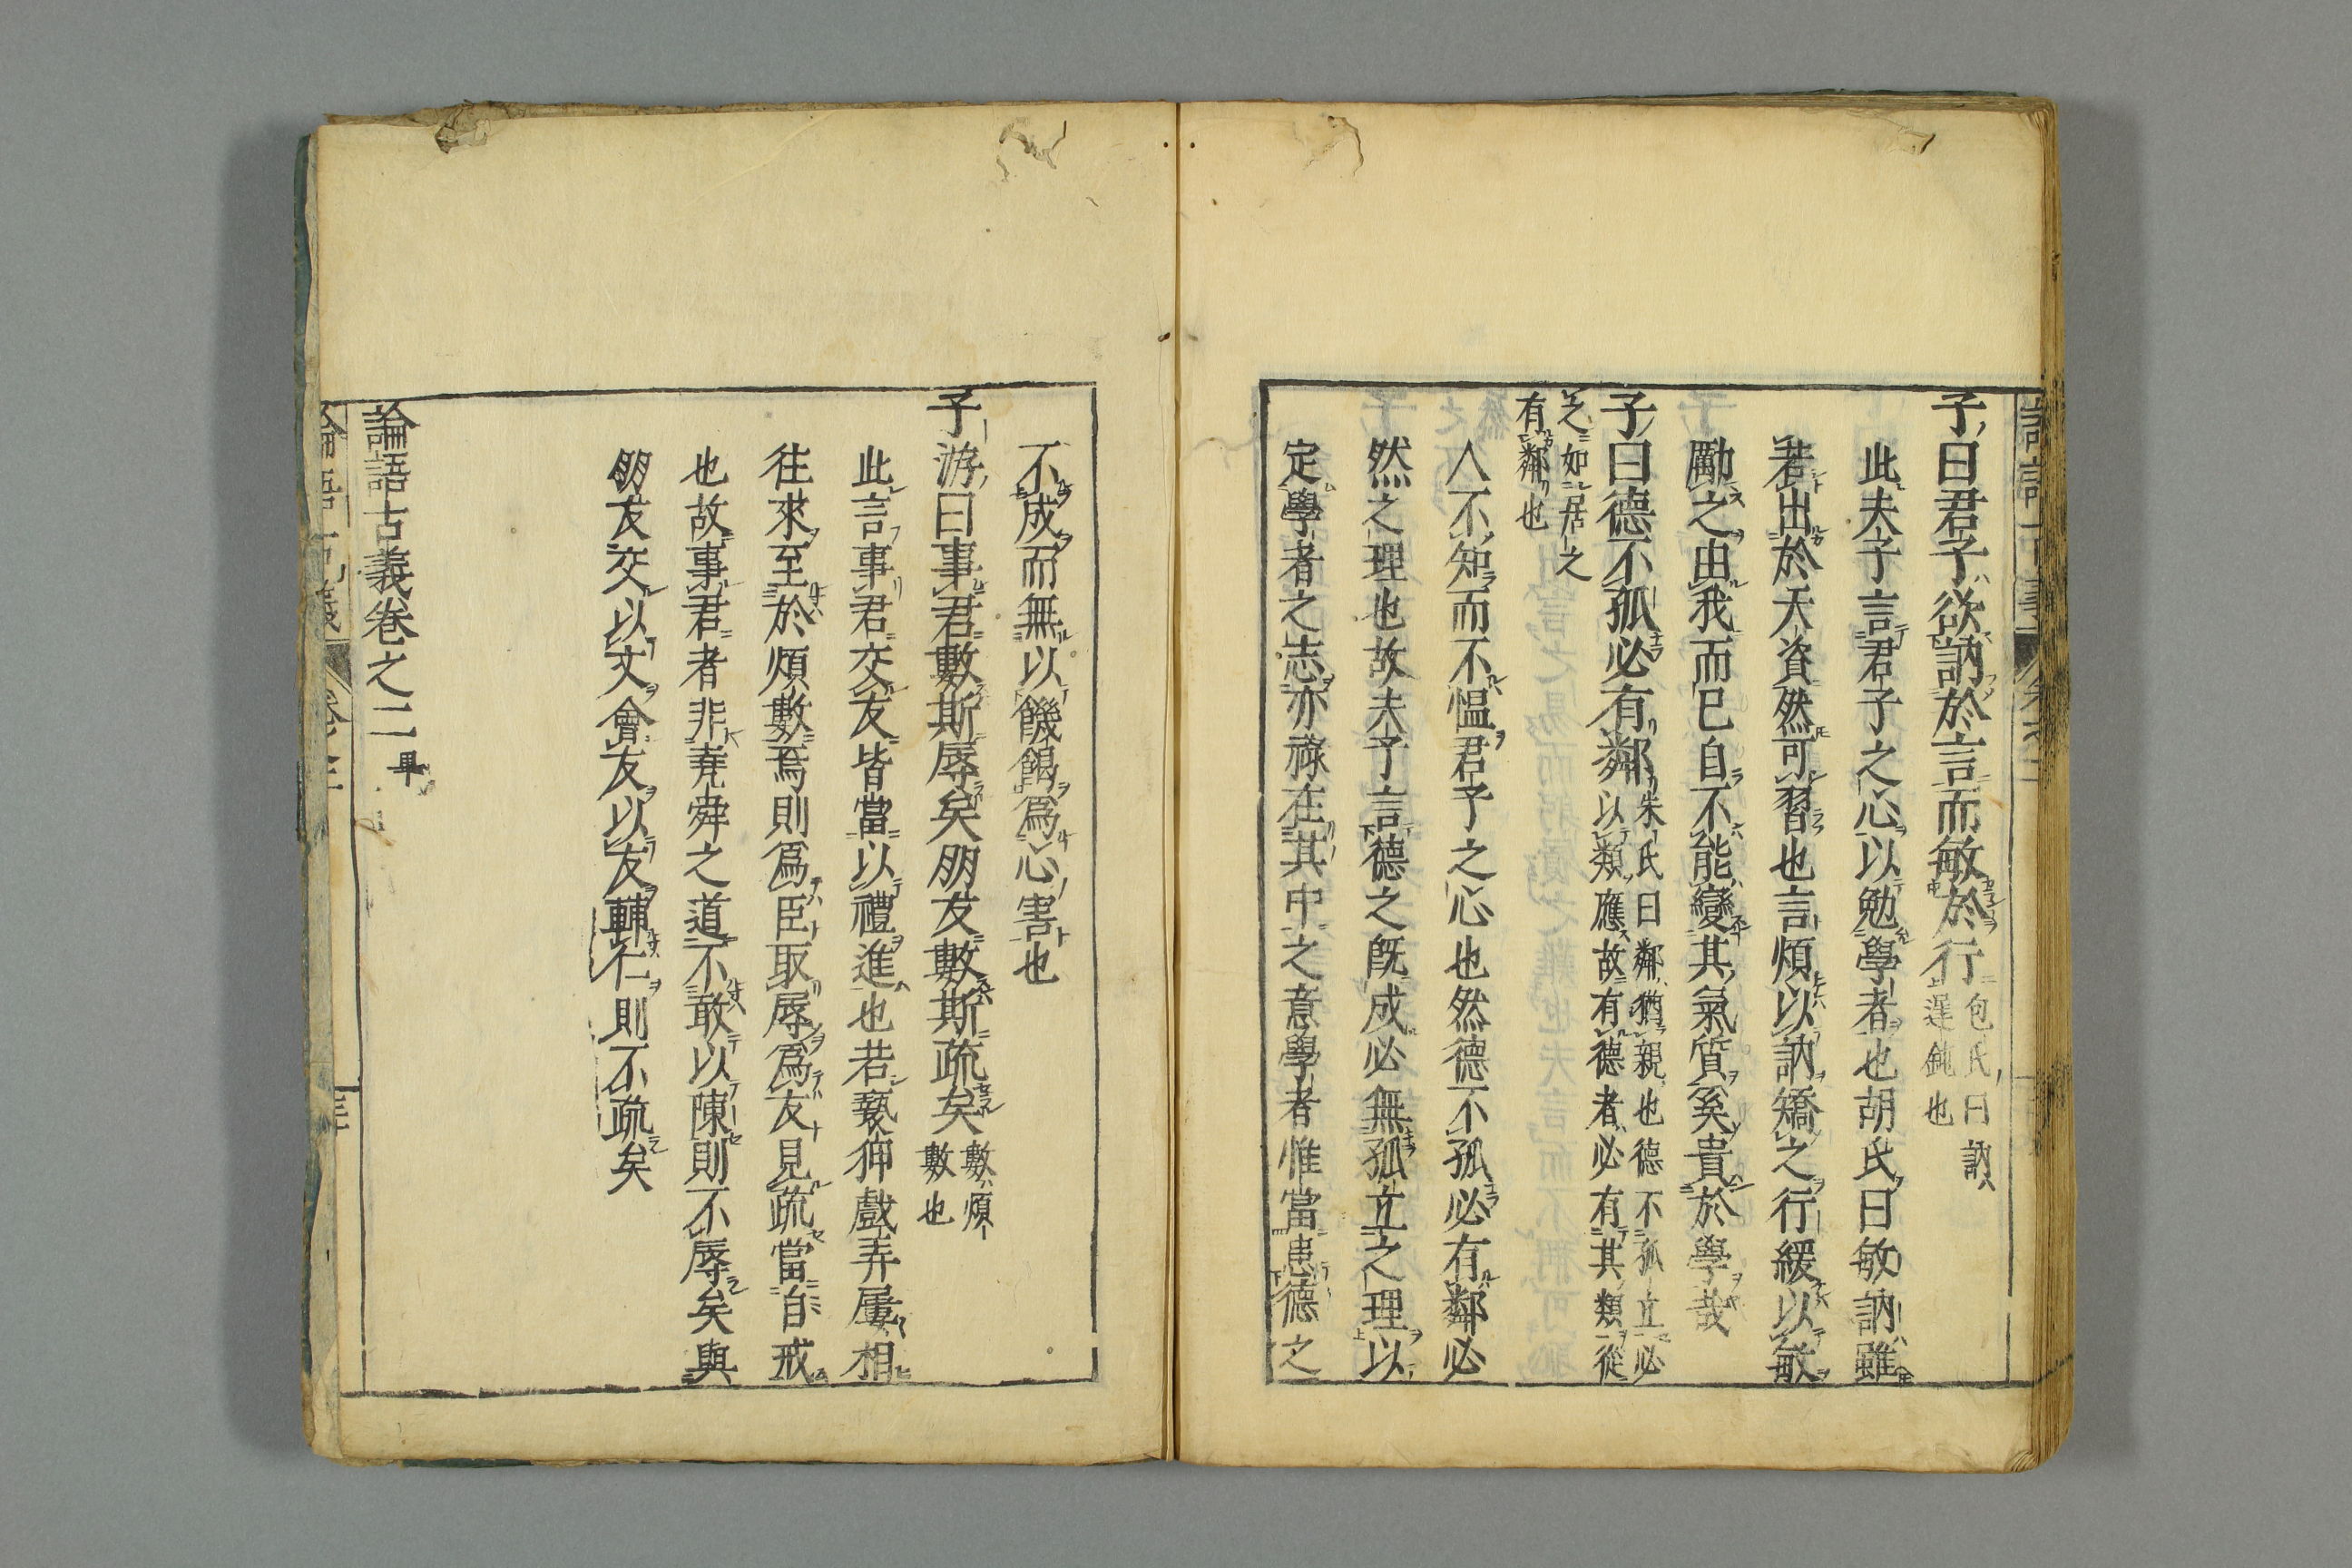 子曰君子欲訥於言而敏於行
包氏曰訥
遲鈍也
此夫子言君子之心以勉學者也胡氏曰敏訥雖
若出於天資然可習也言煩以訥矯之行緩以敏
勵之由我而已自不能變其氣質奚貴於學哉
子曰德不孤必有鄰
朱氏曰鄰猶親也德不孤立必
以類應故有德者必有其類從
之如居之
有鄰也
人不知而不慍君子之心也然德不孤必有鄰必
然之理也故夫子言德之既成必無孤立之理以
定學者之志亦祿在其中之意學者惟當患德之
不成而無以饑餲爲心害也
子游曰事君數斯辱矣朋友數斯疏矣
數煩
數也
此言事君交友皆當以禮進也若褻狎戲弄屢相
往來至於煩數焉則爲臣取辱爲友見疏當自戒
也故事君者非堯舜之道不敢以陳則不辱矣與
朋友交以文會友以友輔仁則不疏矣
論語古義卷之二畢